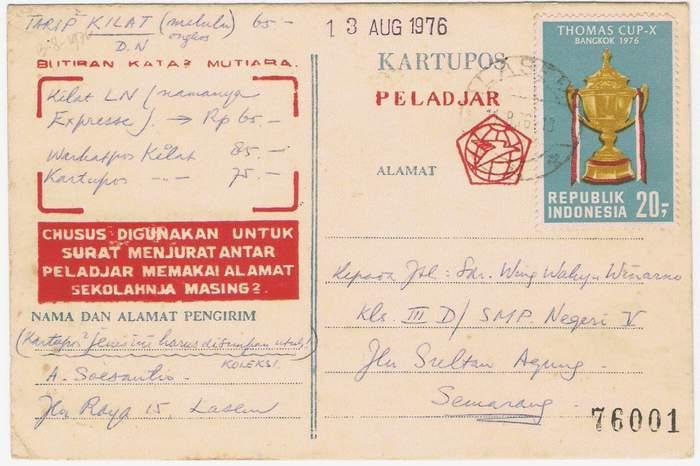 TARIP² KILAT (melulu) 65.-
D.N ongkos
13 AUG 1976
BUTIRAN KATA² MUTIARA.
Kilat LN (namanya
Expresse). → Rp 65.-
Warkatpos Kilat 85.-
Kartupos -..- 75.-
CHUSUS DIGUNAKAN UNTUK
SURAT MENJURAT ANTAR
PELADJAR MEMAKAI ALAMAT
SEKOLAHNJA MASING².
NAMA DAN ALAMAT PENGIRIM
(Kartupos² jenis ini harus disimpan untuk
KOLEKSI
A. Soesantio.
Jln Raya 15, Lasem
KARTUPOS
PELADJAR
ALAMAT
THOMAS CUP-X
BANGKOK 1976
REPUBLIK
INDONESIA 20,-
Kepada Yth: Sdr. Wing Wahyu Winarno
Kls. III D/ SMP Negeri V
Jln Sultan Agung
Semarang.
76001